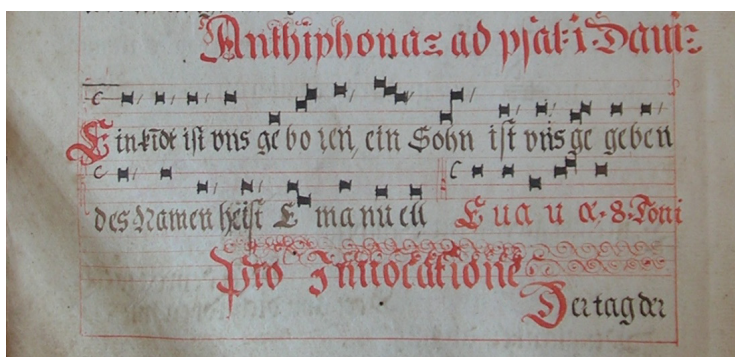 Anthiphona: ad psal: i. Daui:
Ein kīdt ist vns ge bo ren, ein Sohn ist vns ge geben
des Namen heist E ma nu ell E u a u æ. 8. Toni
Pro Introitatione
Der tag der